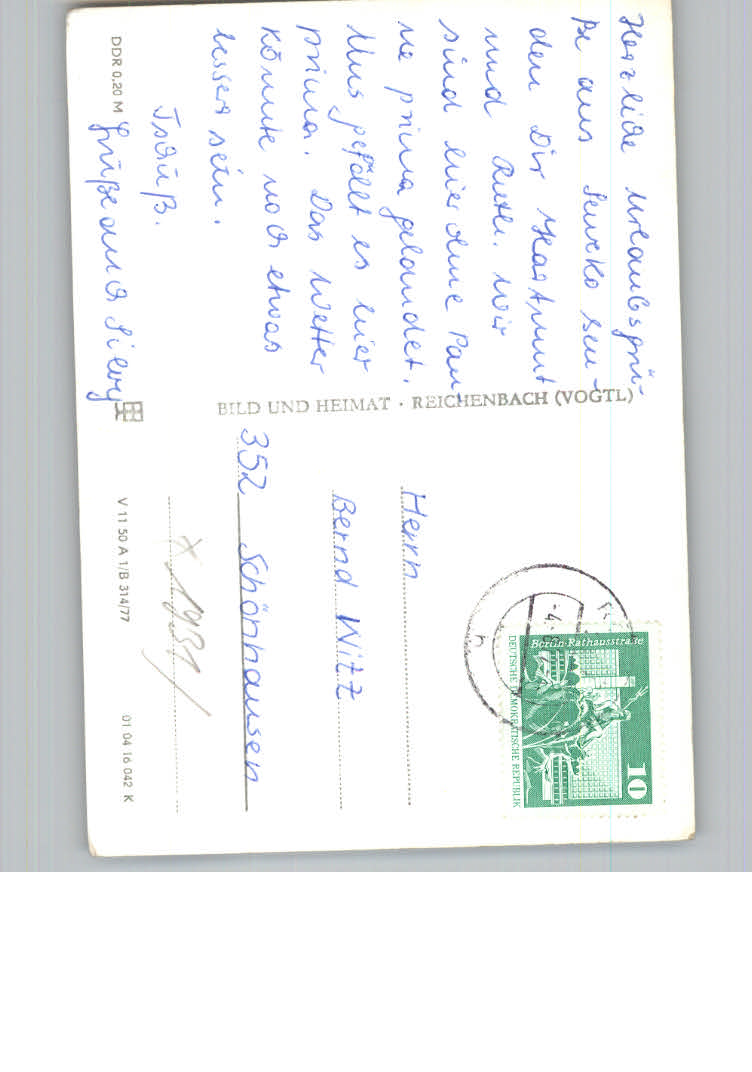 Herzliche Urlaubsgrü-
ße aus Semeko sen-
den Dir Hartmut
und Ruth. Wir
sind hier ohne Pan-
ne prima gelandet.
Uns gefällt es hier
prima. Das Wetter
könnte noch etwas
besser sein.
Tschüß.
Grüße auch Silvy
DDR 0,20 M
BILD UND HEIMAT · REICHENBACH (VOGTL)
V 11 50 A 1/B 314/77
01 04 16 042 K
Berlin·Rathausstraße
DEUTSCHE DEMOKRATISCHE REPUBLIK
10
-4.
Herrn
Bernd Witz
352 Schönhausen
x 1931/